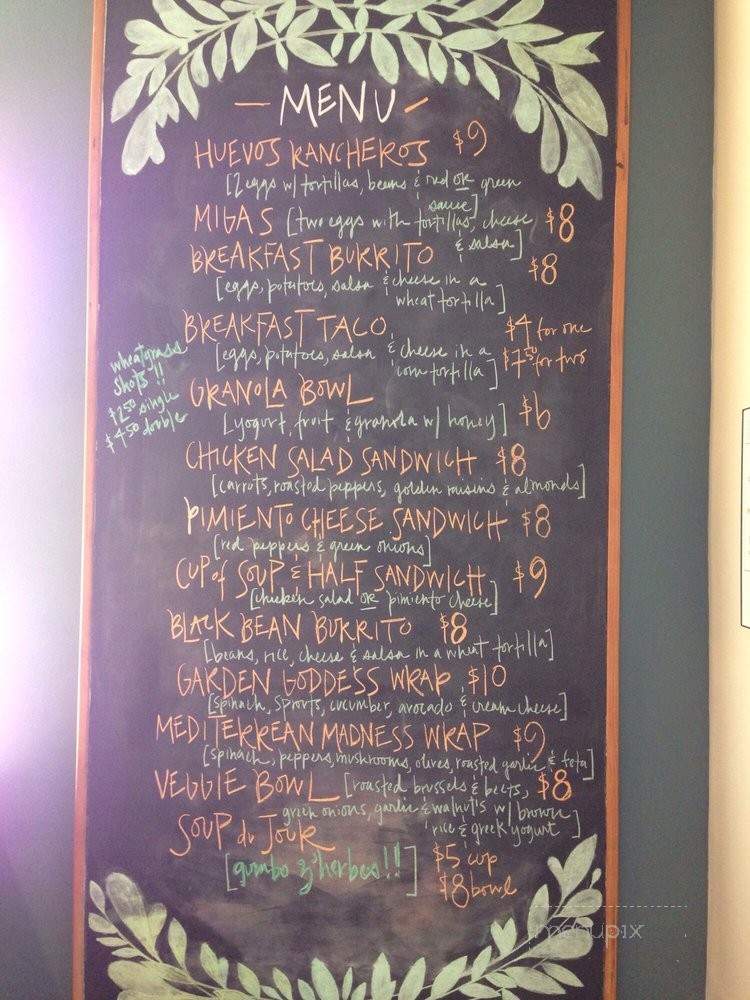 — MENU —
HUEVOS RANCHEROS $9
[2 eggs w/ tortillas, beans & red OR green
sauce]
MIGAS [two eggs with tortillas, cheese $8
& salsa]
BREAKFAST BURRITO $8
[eggs, potatoes, salsa & cheese in a
wheat tortilla]
BREAKFAST TACO $4 for one
[eggs, potatoes, salsa & cheese in a $7.50 for two
corn tortilla]
wheatgrass
shots!!
$2.50 single
$4.50 double
GRANOLA BOWL
[yogurt, fruit & granola w/ honey] $6
CHICKEN SALAD SANDWICH $8
[carrots, roasted peppers, golden raisins & almonds]
PIMIENTO CHEESE SANDWICH $8
[red peppers & green onions]
CUP of SOUP & HALF SANDWICH $9
[chicken salad OR pimiento cheese]
BLACK BEAN BURRITO $8
[beans, rice, cheese & salsa in a wheat tortilla]
GARDEN GODDESS WRAP $10
[spinach, sprouts, cucumber, avocado & cream cheese]
MEDITERREAN MADNESS WRAP $9
[spinach, peppers, mushrooms, olives, roasted garlic & feta]
VEGGIE BOWL [roasted brussels & beets, $8
green onions, garlic & walnuts w/ brown
rice & greek yogurt]
SOUP du JOUR
[gumbo z'herbes!!] $5 cup
$8 bowl
menupix